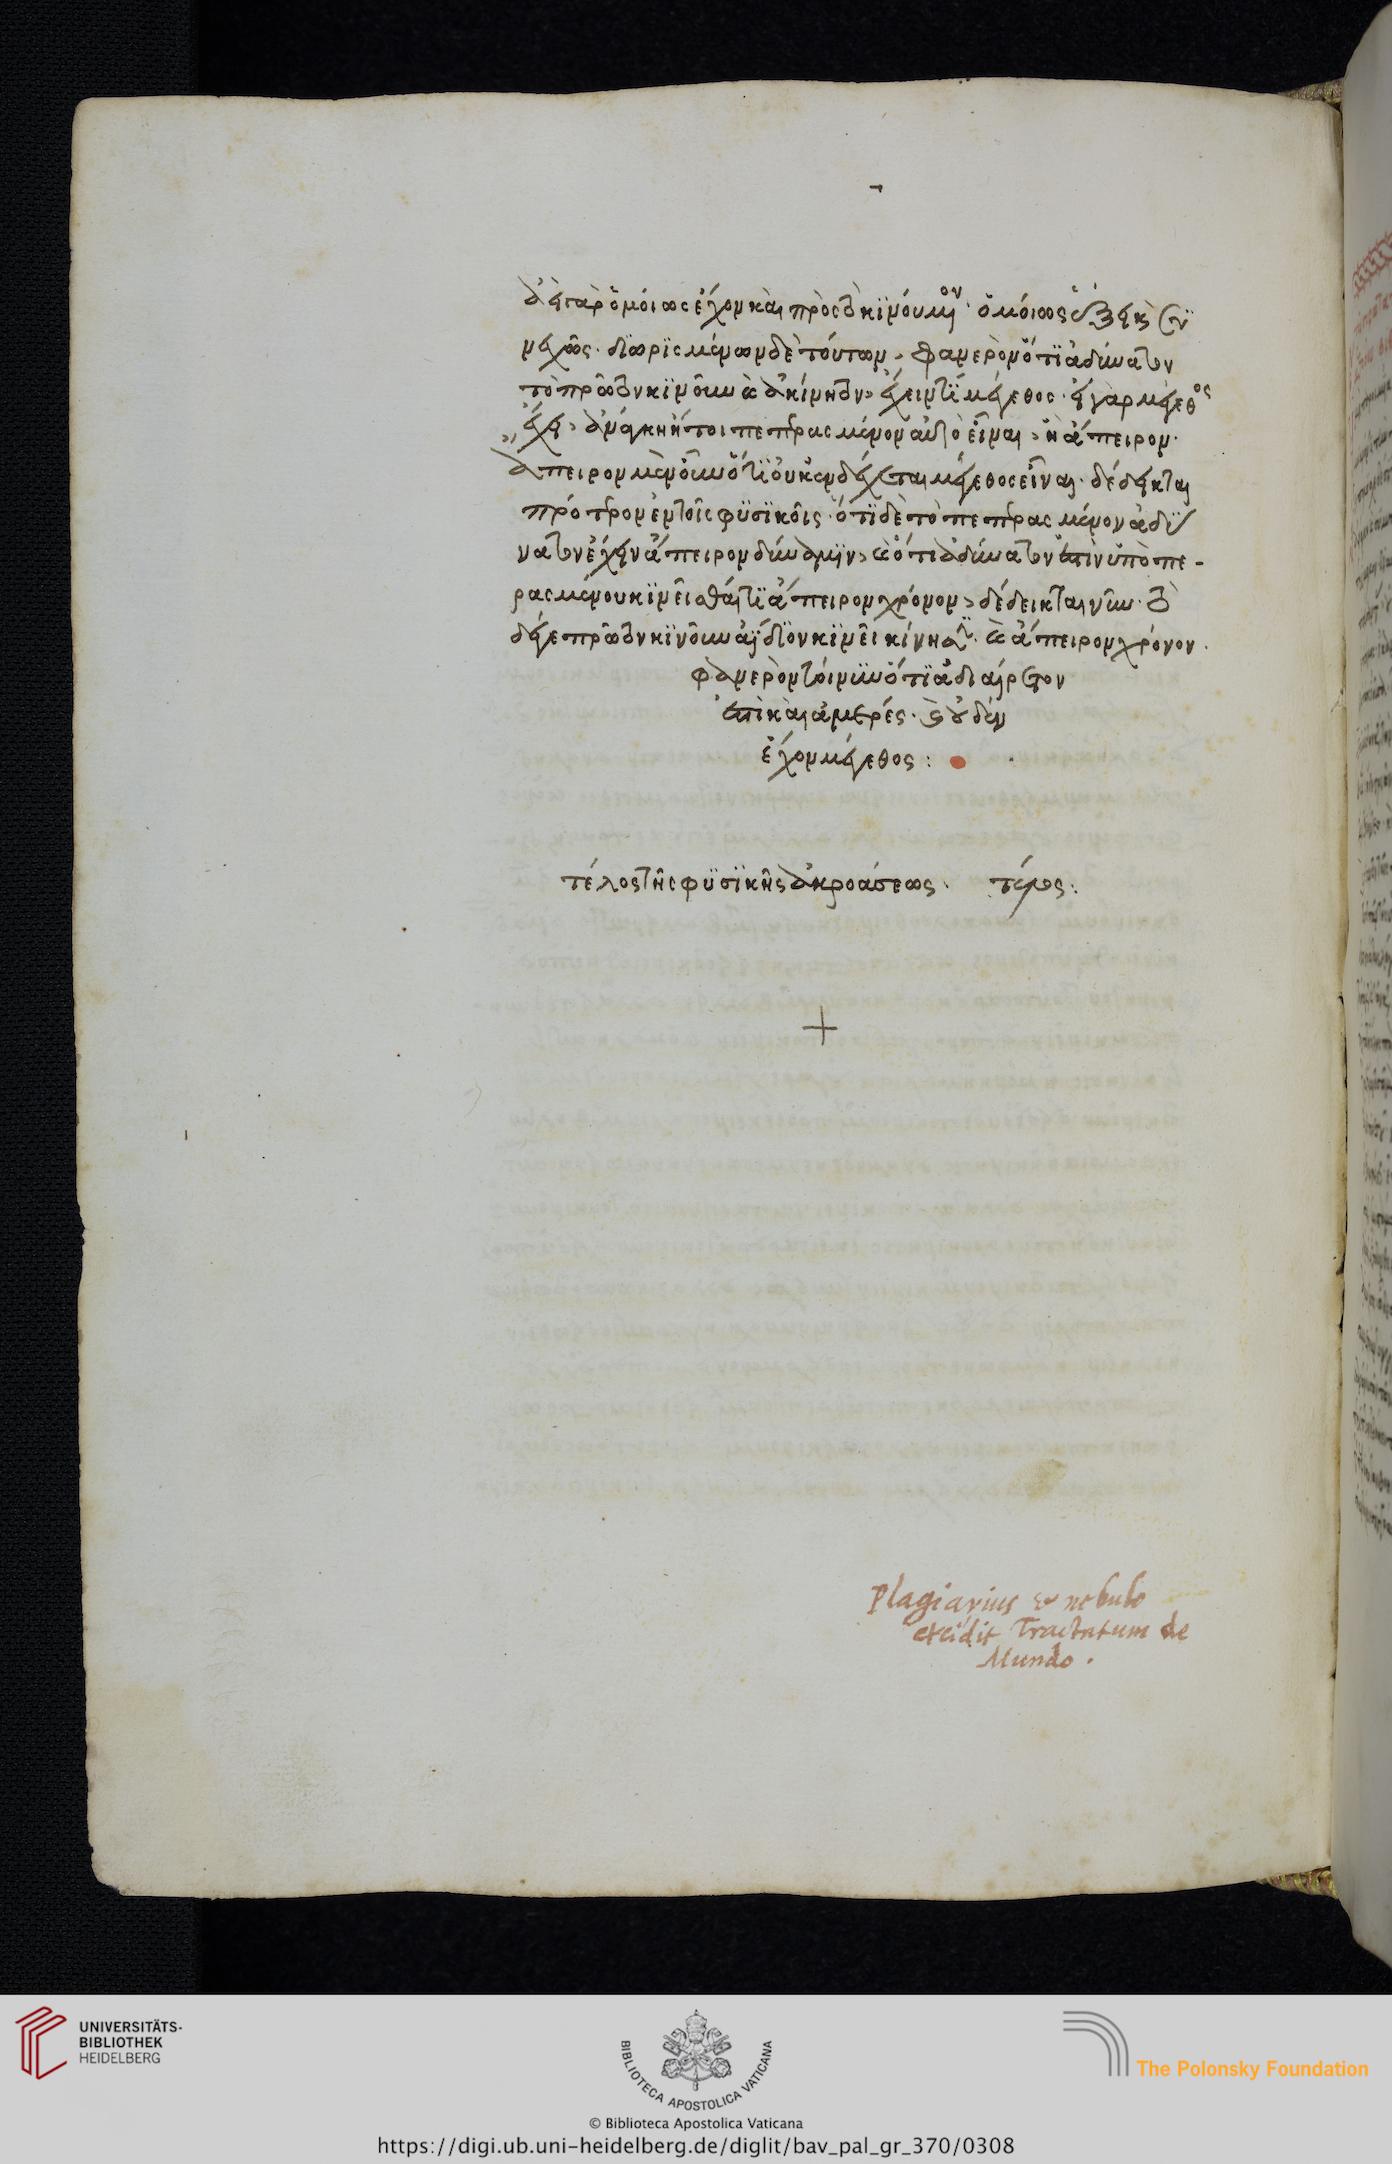 ἀεὶ γὰρ ὁμοίως ἔχον καὶ πρὸς τὸ κινούμενον· ὁμοίως ἕξει καὶ συ
νεχῶς· διωρισμένων δὲ τούτων, φανερὸν ὅτι ἀδύνατον
τὸ πρῶτον κινοῦν καὶ ἀκίνητον, ἔχειν τὶ μέγεθος· εἰ γὰρ μέγεθος
ἔχει, ἀνάγκη ἤτοι πεπερασμένον αὐτὸ εἶναι, ἢ ἄπειρον·
ἄπειρον μὲν οὖν ὅτι οὐκ ἐνδέχεται μέγεθος εἶναι· δέδεικται
πρότερον ἐν τοῖς φυσικοῖς· ὅτι δὲ τὸ πεπερασμένον ἀδύ
νατον ἔχειν ἄπειρον δύναμιν, καὶ ὅτι ἀδύνατον ἐστὶν ὑπὸ πε-
ρασμένου κινεῖσθαί τι ἄπειρον χρόνον, δέδεικται νῦν· τὸ
δέ γε πρῶτον κινοῦν ἀΐδιον κινεῖ κίνησιν· καὶ ἄπειρον χρόνον·
φανερὸν τοίνυν ὅτι ἀδιαίρετον
ἐστὶ καὶ ἀμερές· καὶ οὐδὲν
ἔχον μέγεθος:
τέλος τῆς φυσικῆς ἀκροάσεως· τέλος:
Plagiarius & nebulo
excidit Tractatum de
Mundo.
UNIVERSITÄTS-
BIBLIOTHEK
HEIDELBERG
BIBLIOTECA APOSTOLICA VATICANA
The Polonsky Foundation
© Biblioteca Apostolica Vaticana
https://digi.ub.uni-heidelberg.de/diglit/bav_pal_gr_370/0308